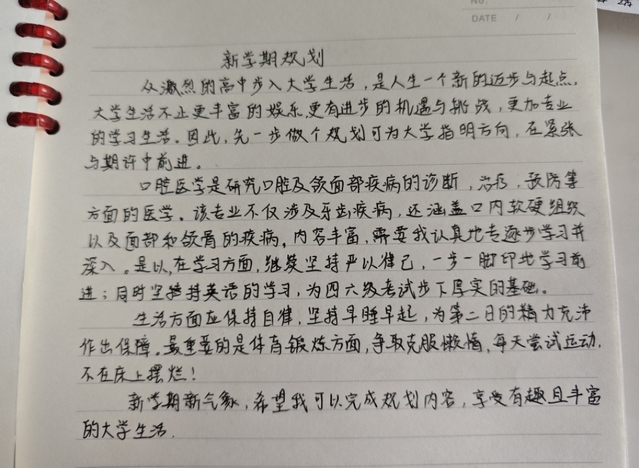 No:
DATE / /
新学期规划
从激烈的高中步入大学生活，是人生一个新的迈步与起点，
大学生活不止更丰富的娱乐，更有进步的机遇与挑战，更加专业
的学习生活。因此，先一步做个规划可为大学指明方向，在紧张
与期许中前进。
口腔医学是研究口腔及颌面部疾病的诊断，治疗，预防等
方面的医学。该专业不仅涉及牙齿疾病，还涵盖口内软硬组织
以及面部和颌骨的疾病。内容丰富，需要我认真地专逐步学习并
深入。是以，在学习方面，继续坚持严以律己，一步一脚印地学习前
进；同时坚持英语的学习，为四六级考试步下厚实的基础。
生活方面应保持自律，坚持早睡早起，为第二日的精力充沛
作出保障。最重要的是体育锻炼方面，争取克服懒惰，每天尝试运动，
不在床上摆烂！
新学期新气象，希望我可以完成规划内容，享受有趣且丰富
的大学生活.